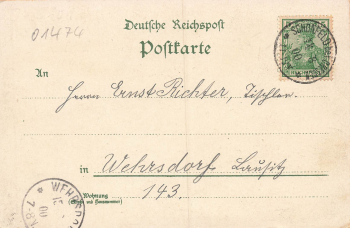 01474
Deutsche Reichspost
Postkarte
An
Herrn Ernst Richter, Tischler.
in Wehrsdorf Lausitz
Wohnung
(Straße und Hausnummer)
143.